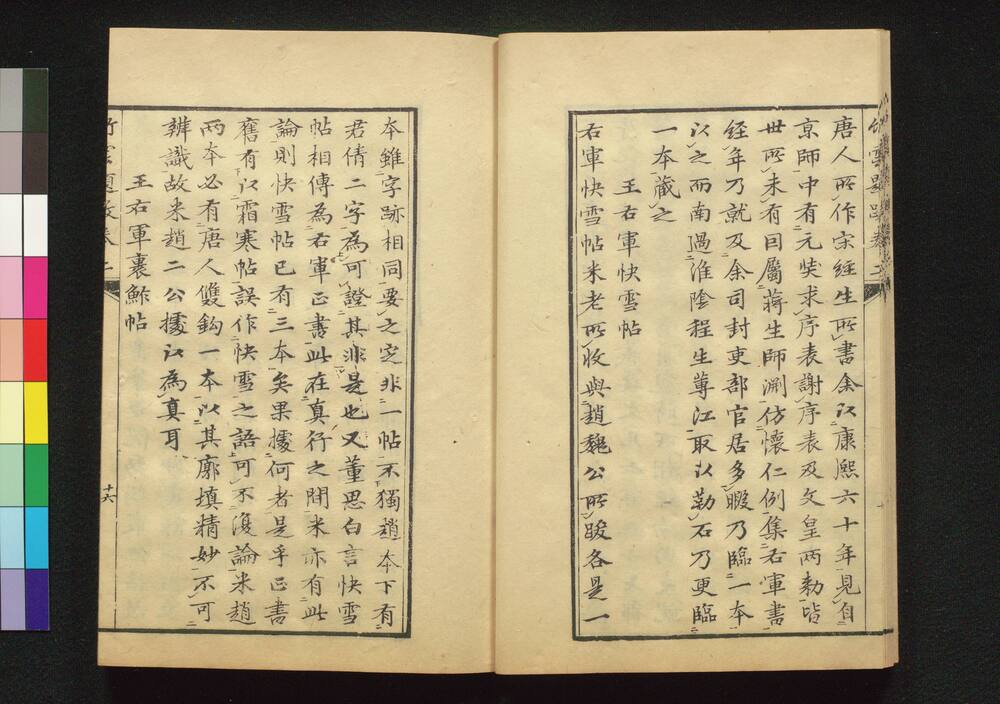 唐人所作宋經生所書余以康熙六十年見自
京師中有元奘求序表謝序表及文皇兩勅皆
世所未有曰屬蔣生師淵仿懷仁例集右軍書
經年乃就及余司封吏部官居多暇乃臨一本
以之而南過淮陰程生蓴江取以勒石乃更臨
一本藏之
王右軍快雪帖
右軍快雪帖米老所收與趙魏公所跋各是一
本雖字跡相同要之定非一帖不獨趙本下有
君倩二字為可證其非是也又董思白言快雪
帖相傳為右軍正書此在真行之間米亦有此
論則快雪帖已有三本矣果據何者是乎正書
舊有以霜寒帖誤作快雪之語可不復論米趙
兩本必有唐人雙鈎一本以其廓填精妙不可
辨識故米趙二公據以為真耳
王右軍裹鮓帖
竹雲題跋卷二
十六